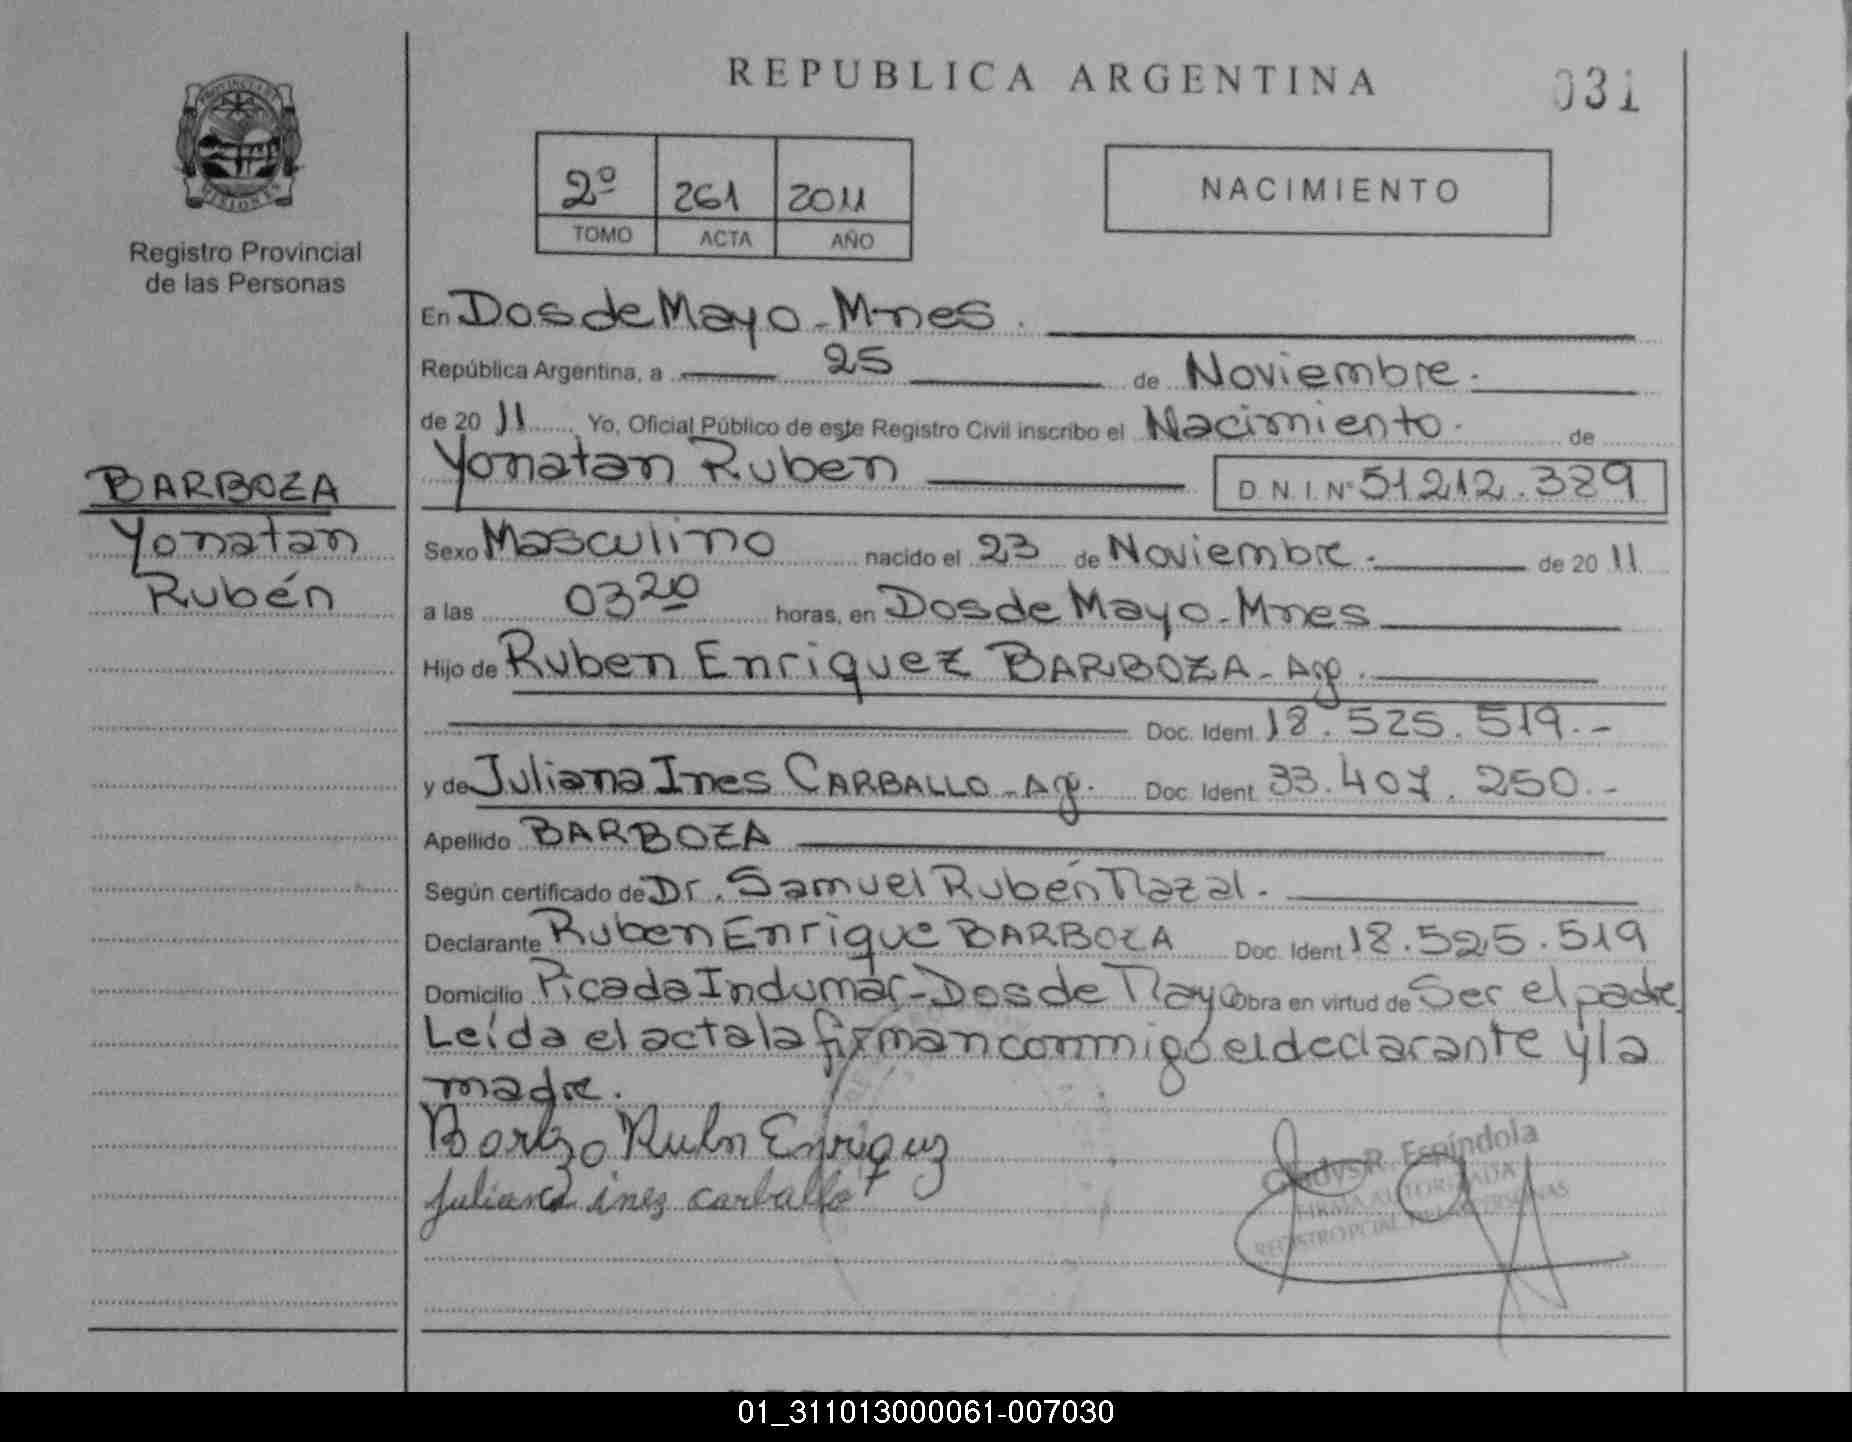 REPUBLICA ARGENTINA
031
PROVINCIA DE MISIONES
Registro Provincial
de las Personas
2º 261 2011
TOMO ACTA AÑO
NACIMIENTO
En Dos de Mayo - Mnes.
República Argentina, a 25 de Noviembre.
de 2011 Yo, Oficial Público de este Registro Civil inscribo el Nacimiento. de
Yonatan Ruben D.N.I. Nº 51.212.389
BARBOZA
Yonatan
Rubén
Sexo Masculino nacido el 23 de Noviembre. de 2011
a las 03 20 horas, en Dos de Mayo - Mnes
Hijo de Ruben Enriquez BARBOZA - Arg.
Doc. Ident. 18.525.519.-
y de Juliana Ines CARBALLO - Arg. Doc. Ident. 33.407.250.-
Apellido BARBOZA
Según certificado de Dr. Samuel Rubén Mazal.
Declarante Ruben Enrique BARBOZA Doc. Ident. 18.525.519
Domicilio Picada Indumar - Dos de Mayo Obra en virtud de Ser el padre
Leída el acta la firman conmigo el declarante y la
madre.
Ruben Enriquez
Juliana ines carballo
Gladys R. Espíndola
FIRMA AUTORIZADA
REGISTRO PCIAL. DE LAS PERSONAS
01_311013000061-007030